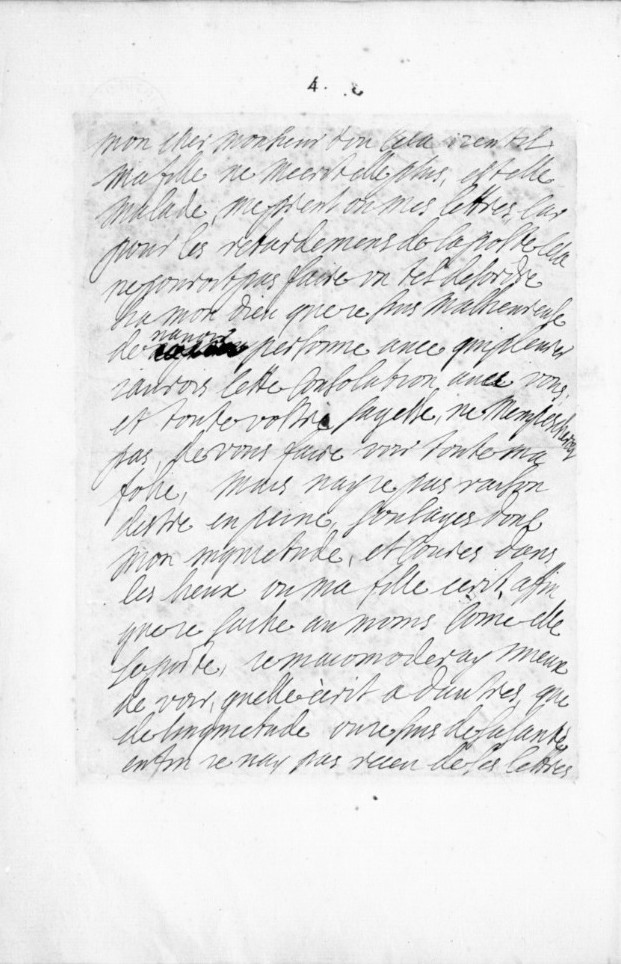 4.
mon cher monsieur dou cela vient il
ma fille ne mecrit elle plus, est elle
malade, me prent on mes lettres, car
pour les retardemens de la poste cela
ne pouroit pas faire un tel desordre
ha mon dieu que ie suis malheureuse
de nauoir personne auec qui pleurer
iaurois cette consolation auec vous,
et toute vostre sagesse, ne mempescheroit
pas, de vous faire voir toute ma
folie, mais nay ie pas raison
destre en peine, soulagés donc
mon inquietude, et courés dans
les lieux ou ma fille ecrit, afin
que ie sache au moins come elle
se porte, ie macomoderay mieux
de voir, quelle ècrit a dautres, que
de linquietude ou ie suis de sa santé
enfin ie nay pas receu de ses lettres